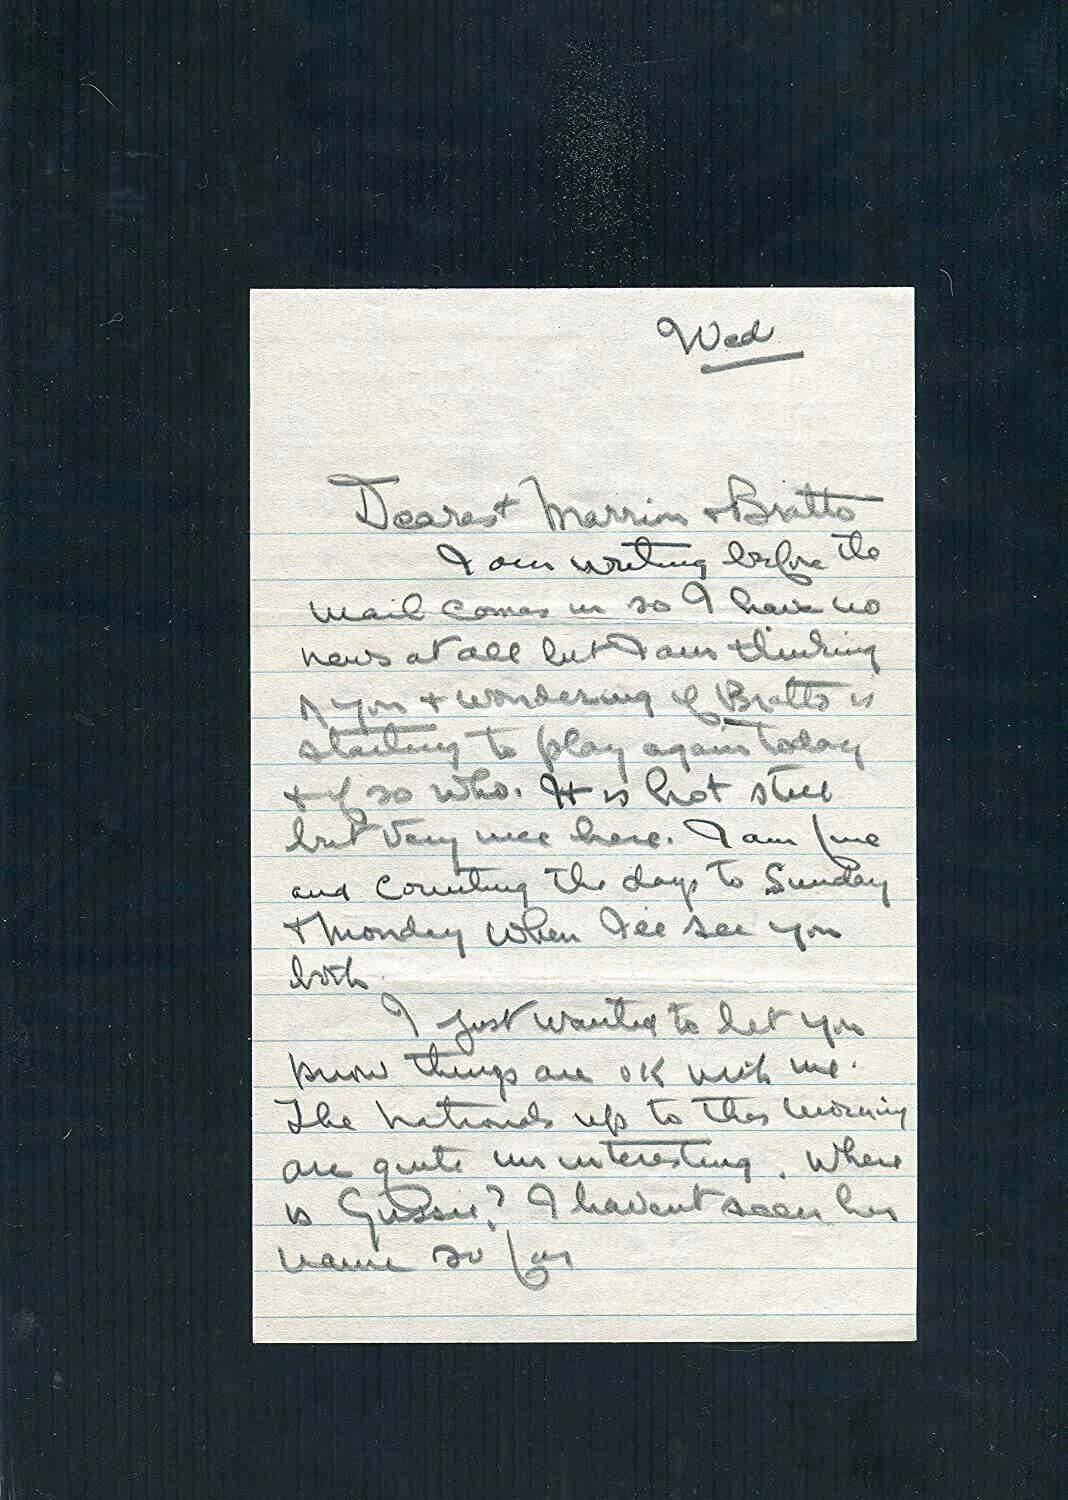 Wed
Dearest Marrim + Bratto
I am writing before the
mail comes in so I have no
news at all but I am thinking
of you + wondering if Bratto is
starting to play again today
+ if so who. It is hot still
but very nice here. I am fine
and counting the days to Sunday
+ Monday when I'll see you
both.
I just wanted to let you
know things are OK with me.
The Nationals up to this morning
are quite uninteresting. Where
is Gussie? I havent seen her
name so far